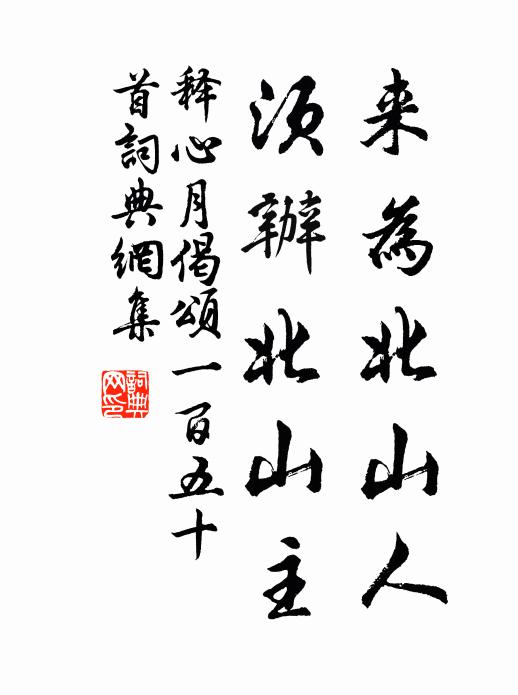 来為北山人
須辦北山主
释心月偈頌一百五十
首詞典網集
詞典
网印